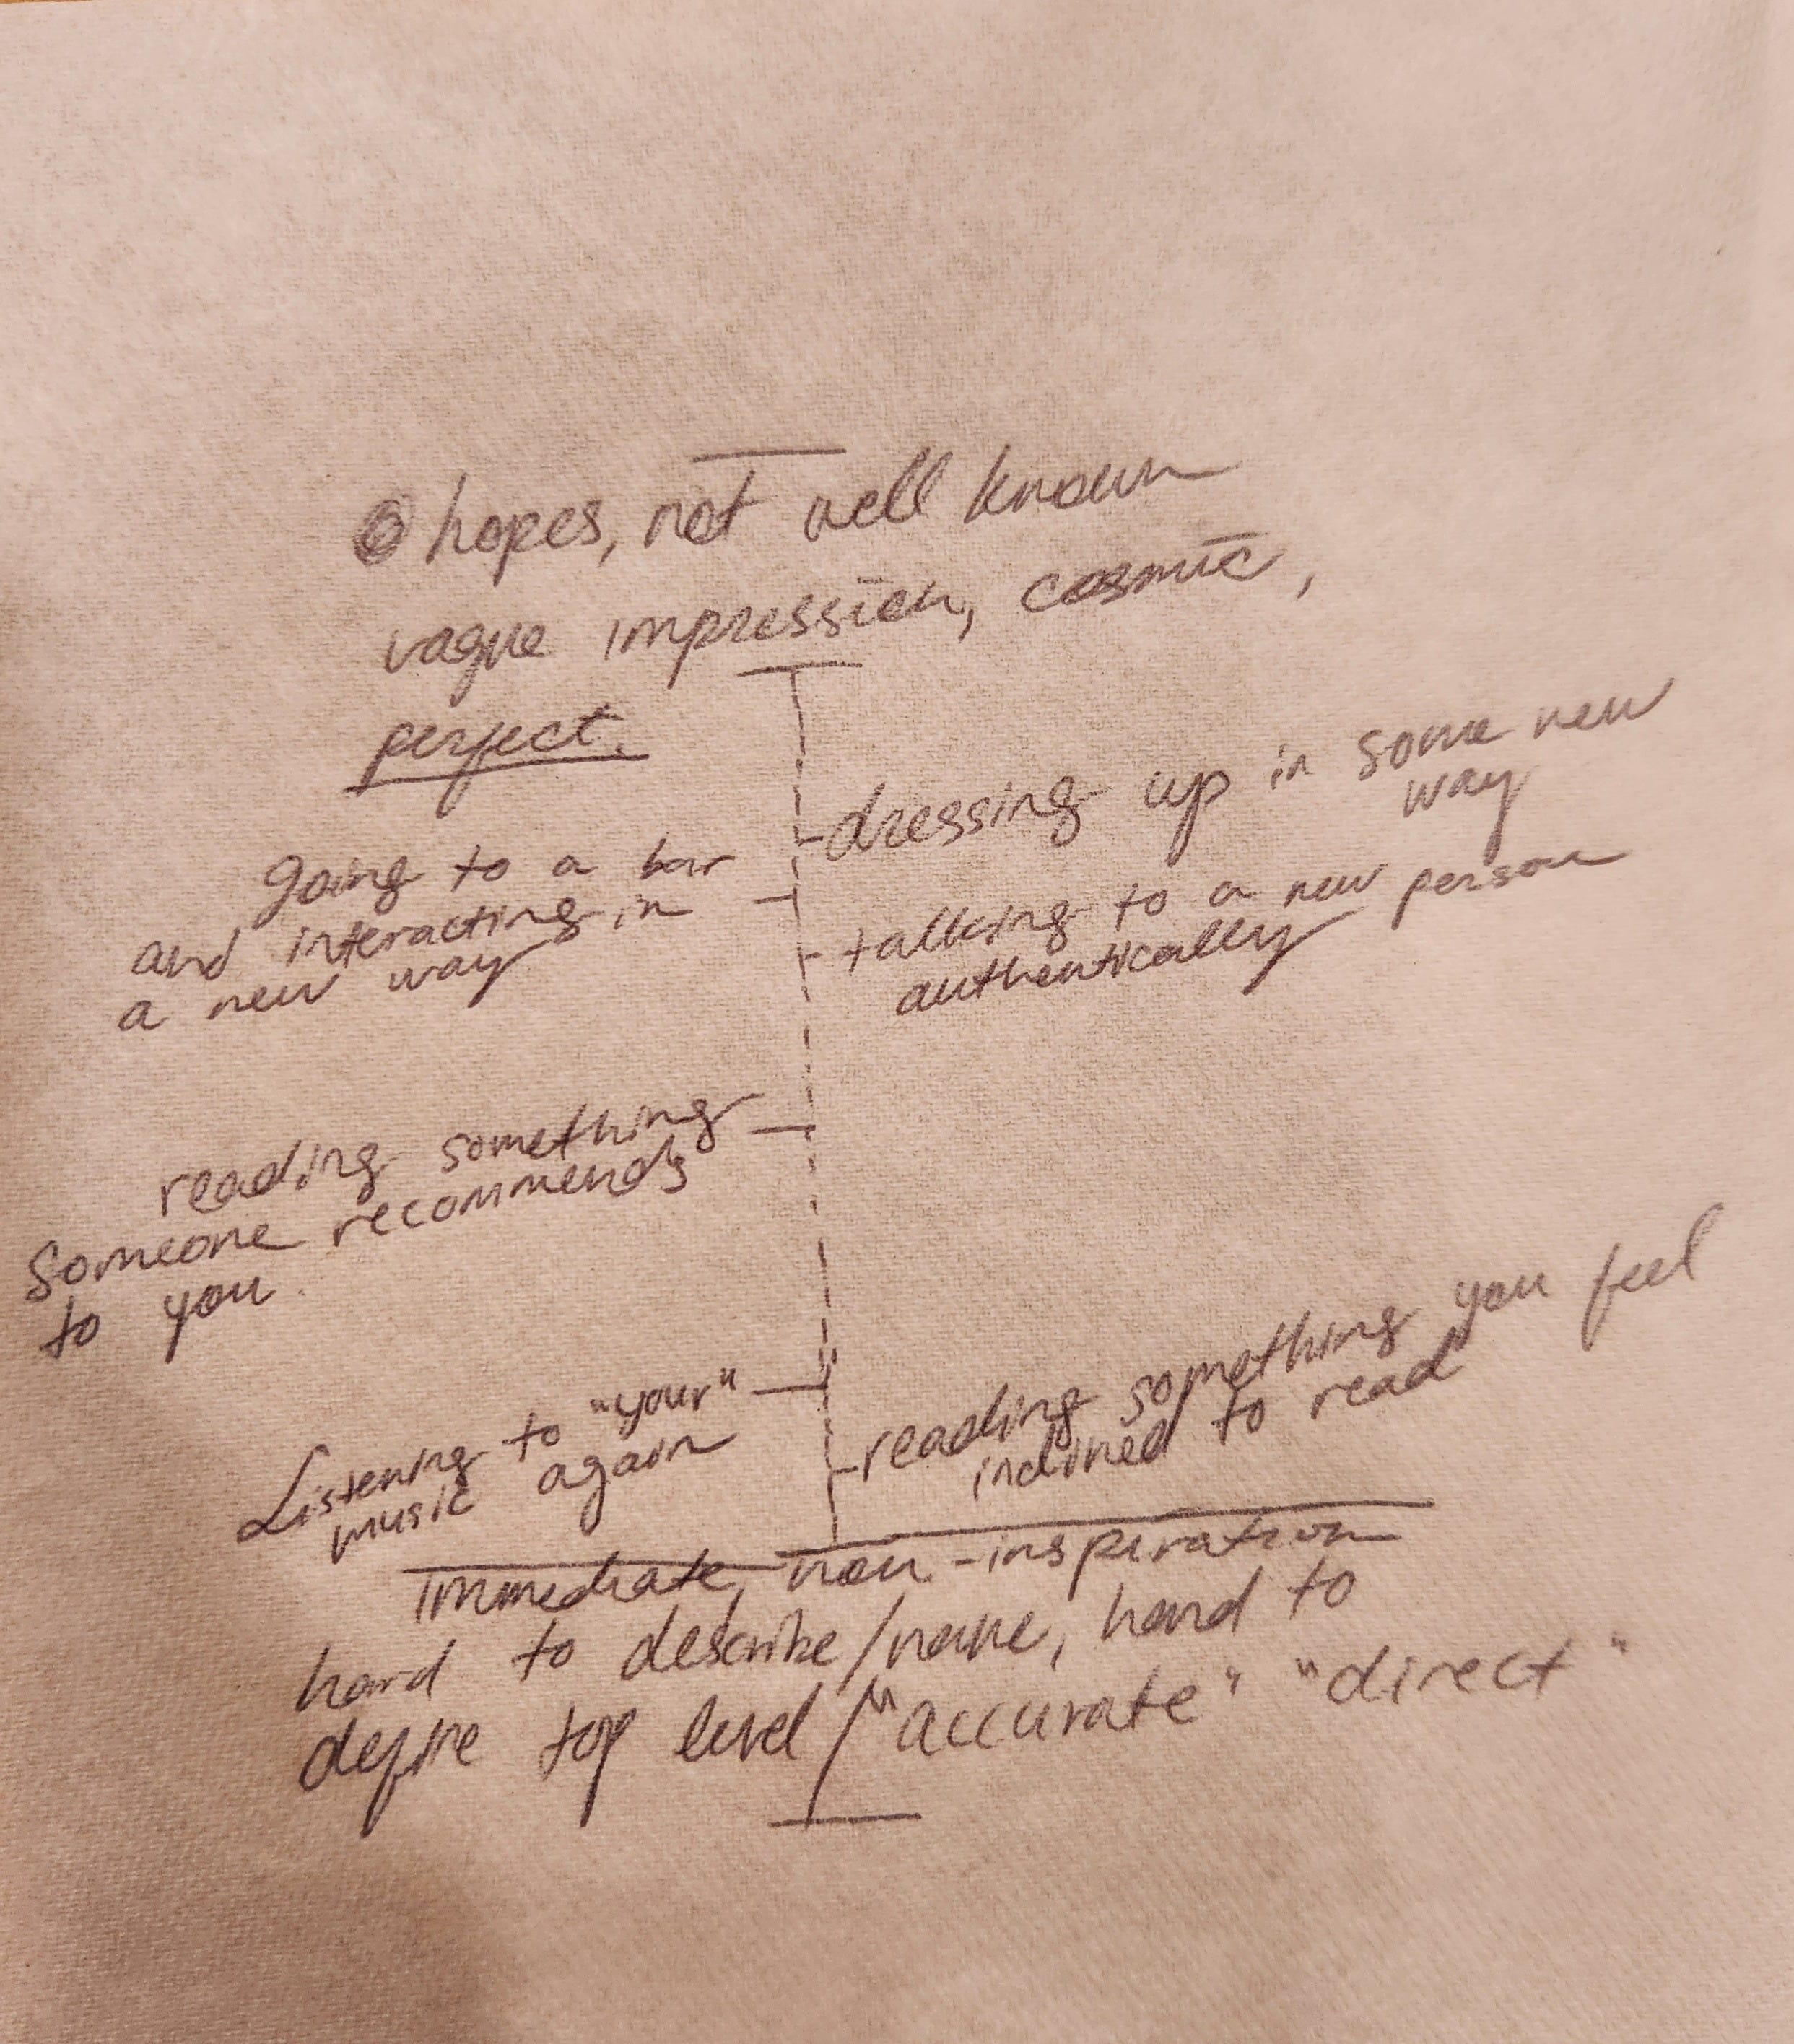 hopes, not well known
vague impression, cosmic,
perfect.
dressing up in some new
way
going to a bar
and interacting in
a new way
talking to a new person
authentically
reading something
someone recommends
to you.
Listening to "your"
music again
reading something you feel
inclined to read
immediate, non-inspiration
hard to describe/name, hard to
define top level/"accurate" "direct"